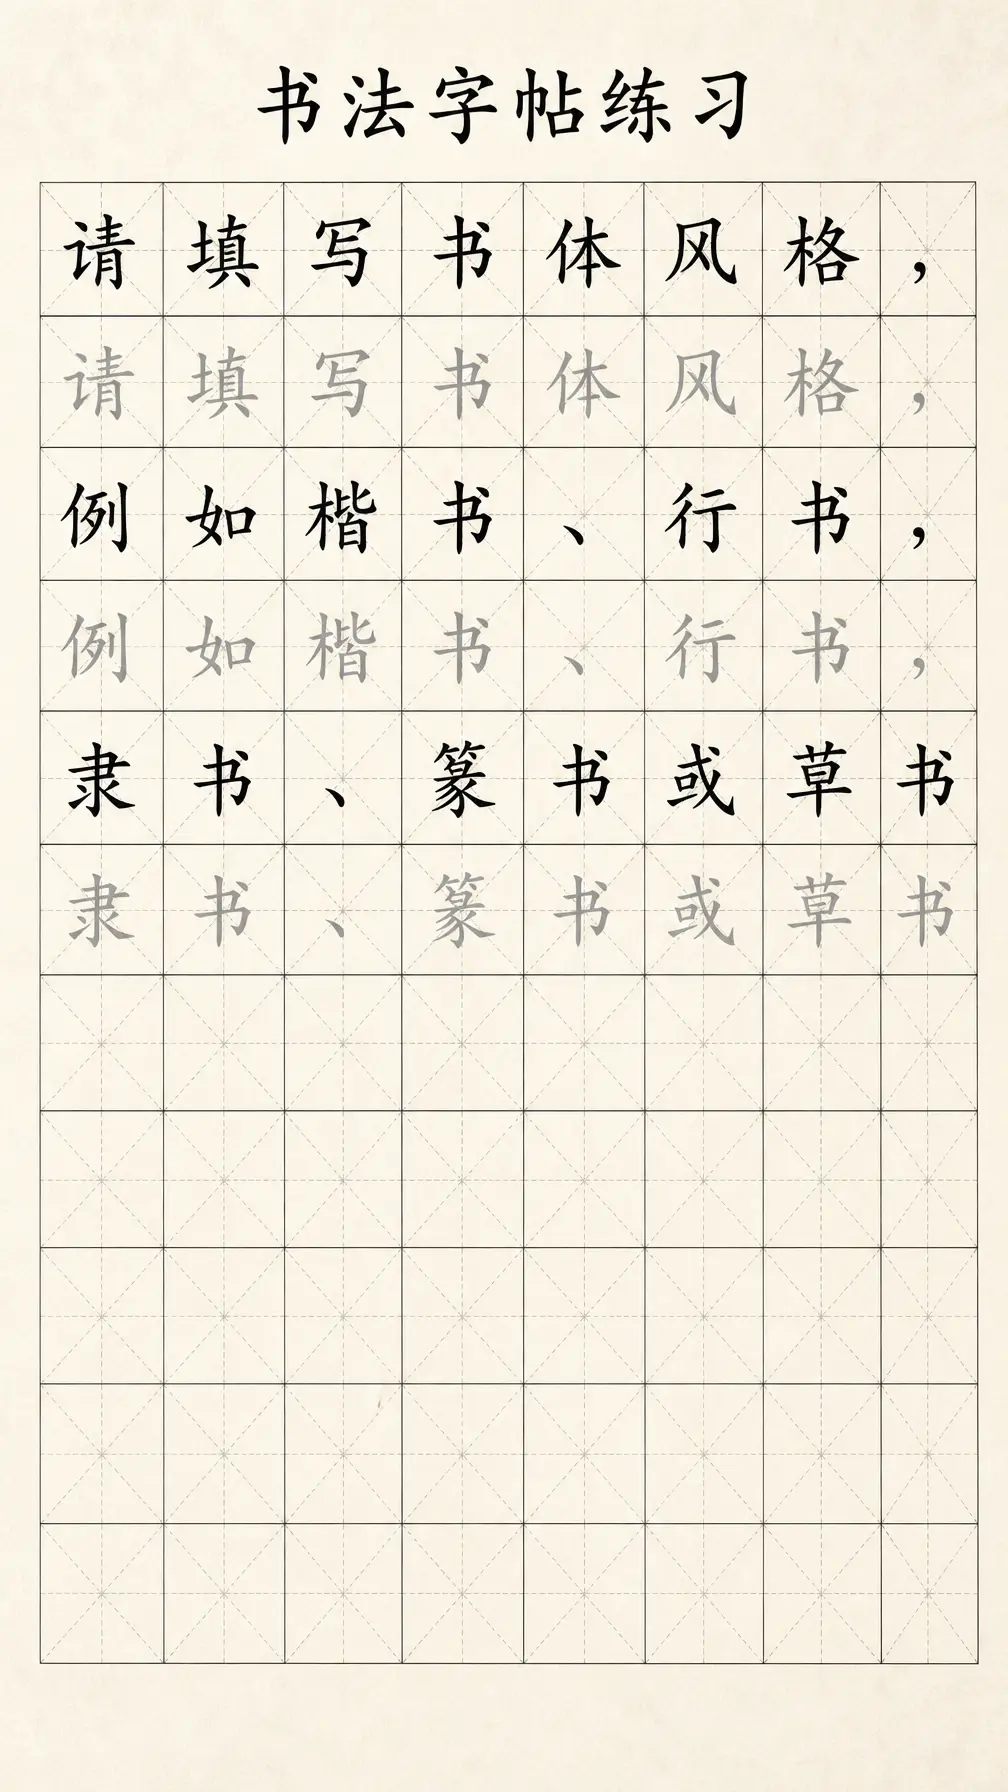 书法字帖练习
请填写书体风格，
请填写书体风格，
例如楷书、行书，
例如楷书、行书，
隶书、篆书或草书
隶书、篆书或草书